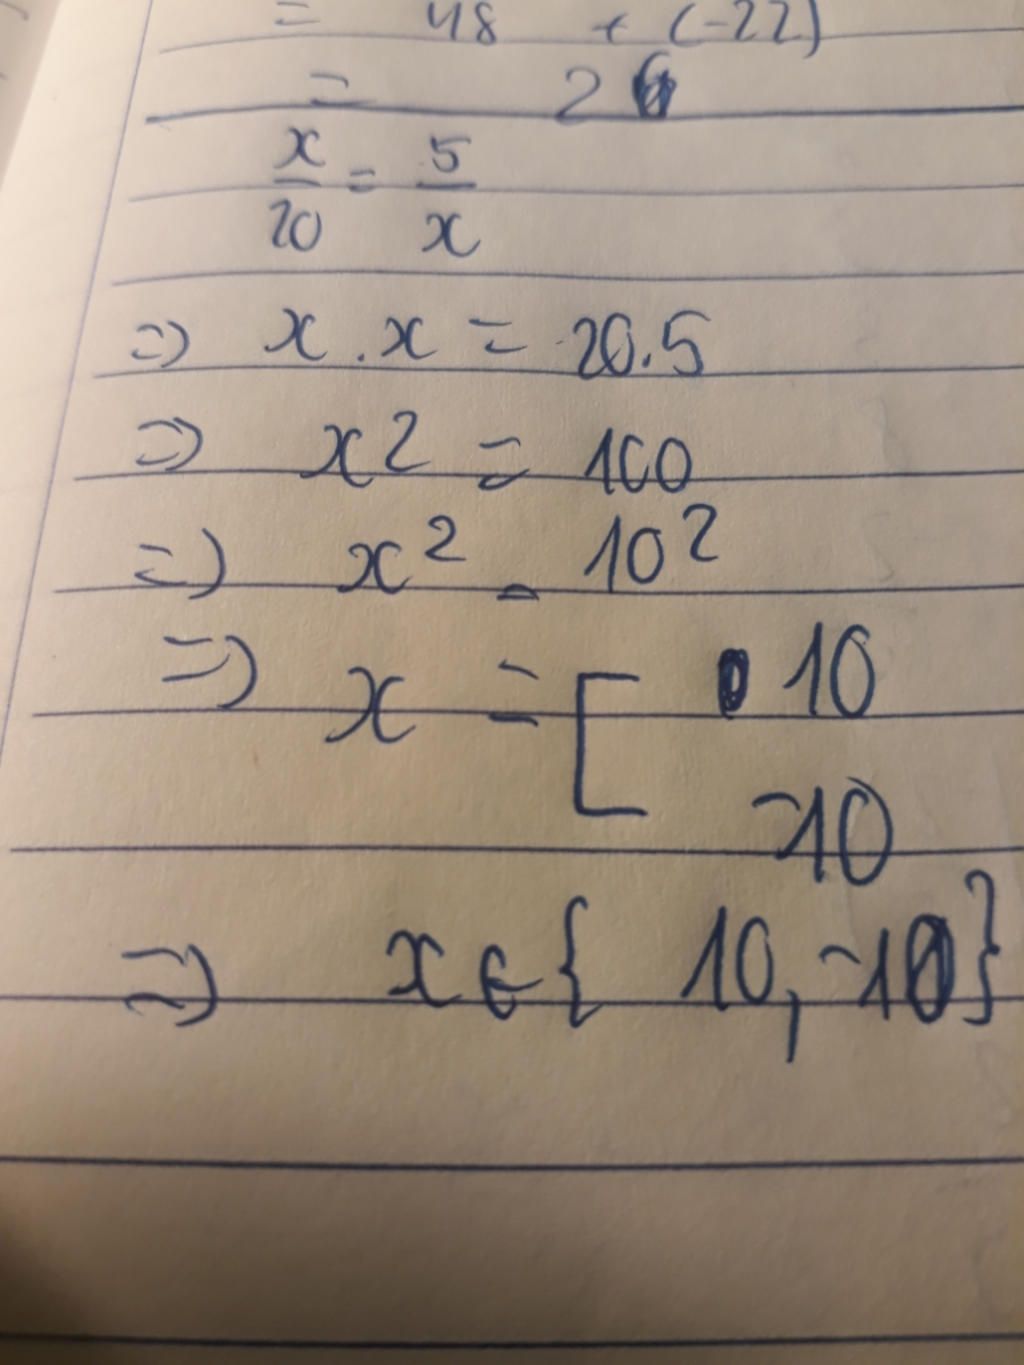 = 48 + (-22)
= 26
x/20 = 5/x
=> x . x = 20.5
=> x2 = 100
=> x² = 10²
=> x = [ 10
-10
=> x ∈ { 10, -10 }